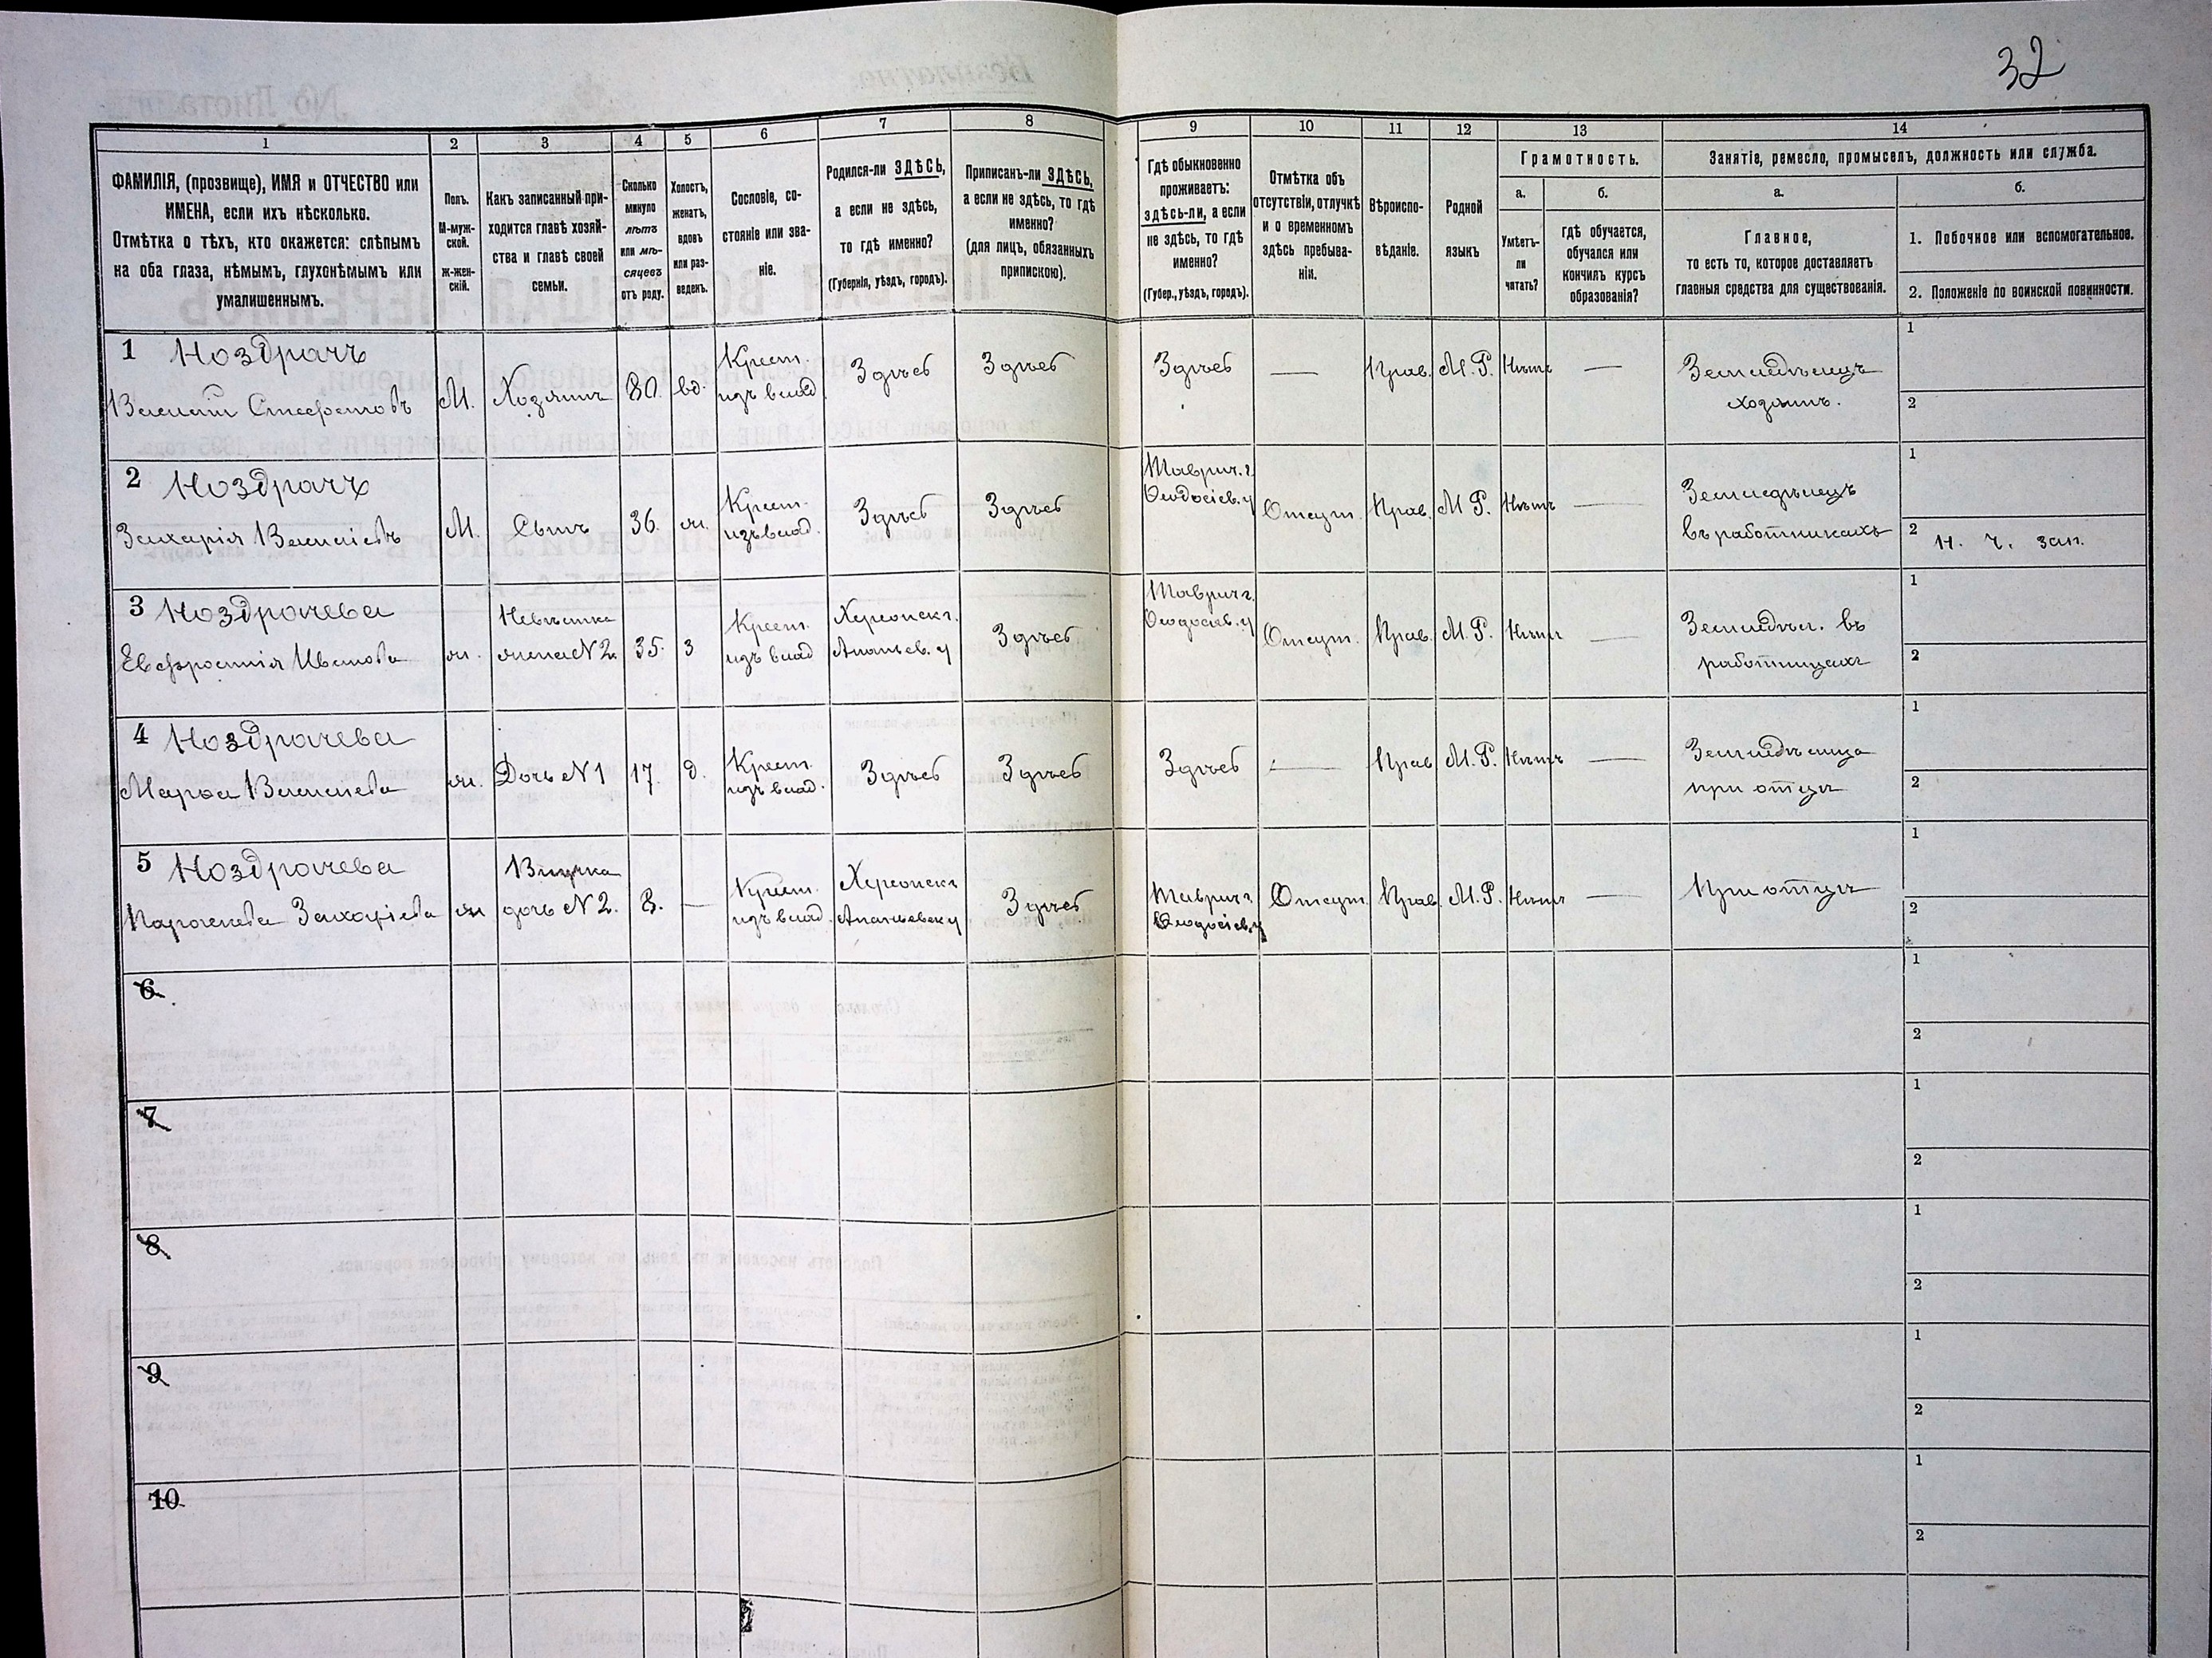 32
1 2 3 4 5 6 7 8 9 10 11 12 13 14
ФАМИЛІЯ, (прозвище), ИМЯ и ОТЧЕСТВО или
ИМЕНА, если ихъ нѣсколько.
Отмѣтка о тѣхъ, кто окажется: слѣпымъ
на оба глаза, нѣмымъ, глухонѣмымъ или
умалишеннымъ.
Полъ.
М-муж-
ской.
ж-жен-
скій.
Какъ записанный при-
ходится главѣ хозяй-
ства и главѣ своей
семьи.
Сколько
минуло
лѣтъ
или мѣ-
сяцевъ
отъ роду.
Холостъ,
женатъ,
вдовъ
или раз-
веденъ.
Сословіе, со-
стояніе или зва-
ніе.
Родился-ли ЗДѢСЬ,
а если не здѣсь,
то гдѣ именно?
(Губернія, уѣздъ, городъ).
Приписанъ-ли ЗДѢСЬ,
а если не здѣсь, то гдѣ
именно?
(для лицъ, обязанныхъ
припискою).
Гдѣ обыкновенно
проживаетъ:
здѣсь-ли, а если
не здѣсь, то гдѣ
именно?
(Губер., уѣздъ, городъ).
Отмѣтка объ
отсутствіи, отлучкѣ
и о временномъ
здѣсь пребыва-
ніи.
Вѣроиспо-
вѣданіе.
Родной
языкъ
Грамотность.
а.
Умѣетъ-
ли
читать?
б.
гдѣ обучается,
обучался или
кончилъ курсъ
образованія?
Занятіе, ремесло, промыселъ, должность или служба.
а.
Главное,
то есть то, которое доставляетъ
главныя средства для существованія.
б.
1. Побочное или вспомогательное.
2. Положеніе по воинской повинности.
1 Ноздрачъ
М. Хозяинъ 80. вд.
Крест.
изъ влад.
Здѣсь Здѣсь Здѣсь — Прав. М. Р. Нѣтъ —
Земледѣлецъ
хозяинъ.
1
2
2 Ноздрачъ
Захарія
М. Сынъ 36. ж.
Крест.
изъ влад.
Здѣсь Здѣсь
Таврич. г.
Ѳеодосіев. у
Отсут. Прав. М. Р. Нѣтъ —
Земледѣлецъ
въ работникахъ
1
2 Н. ч. зап.
3 Ноздрачева
Евфросинія Иванова
ж.
Невѣстка
жена N 2.
35. З
Крест.
изъ влад.
Херсонск г.
Ананьев. у
Здѣсь
Таврич г.
Ѳеодосіев. у
Отсут. Прав. М. Р. Нѣтъ —
Земледѣл. въ
работницахъ
1
2
4 Ноздрачева
Марѳа
ж. Дочь N 1 17. д.
Крест.
изъ влад.
Здѣсь Здѣсь Здѣсь — Прав М. Р. Нѣтъ —
Земледѣлица
при отцѣ
1
2
5 Ноздрачева
Параскева Захаріева
ж
Внучка
дочь N 2.
8. —
Крест.
изъ влад.
Херсонск г
Ананьевск у
Здѣсь
Таврич г.
Ѳеодосіев. у
Отсут. Прав. М. Р. Нѣтъ —
При отцѣ
1
2
6
1
2
7
1
2
8
1
2
9
1
2
10
1
2